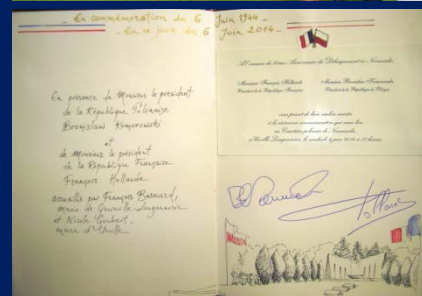 En commémoration du 6 Juin 1944 -
En ce jour du 6 Juin 2014 -
En présence de Monsieur le président
de la République Polonaise
Bronislaw Komorowski
et
de Monsieur le président
de la République Française
François Hollande
accueillis par François
maire de Grainville-Langannerie
et Nicole Goubert,
maire d'Urville
A l'occasion du 70ème Anniversaire du Débarquement en Normandie
Monsieur François Hollande
Président de la République Française
Monsieur Bronislaw Komorowski
Président de la République de Pologne
vous prient de bien vouloir assister
à la cérémonie commémorative qui aura lieu
au Cimetière polonais de Normandie
à Urville Langannerie, le vendredi 6 juin 2014 à